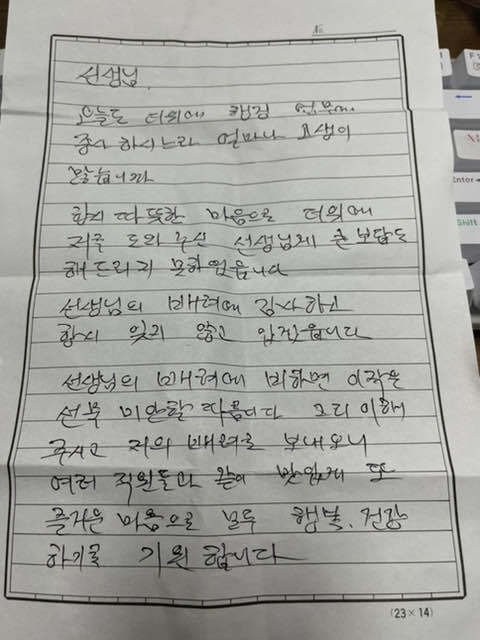 No
선생님.
오늘도 더위에 행정 업무에
종사 하시느라 얼마나 고생이
많습니까
항시 따뜻한 마음으로 더위에
저를 도와 주신 선생님께 큰 보답도
해 드리지 못하였읍니다
선생님의 배려에 감사하고
항시 잊지 않고 있겠읍니다
선생님의 배려에 비하면 이 작은
선물 미안할 따름이다 그리 이해
주시고 저의 배려를 보내오니
여러 직원들과 같이 맛있게 또
즐거운 마음으로 모두 행복. 건강
하기를 기원 합니다
(23×14)
Enter
Shift